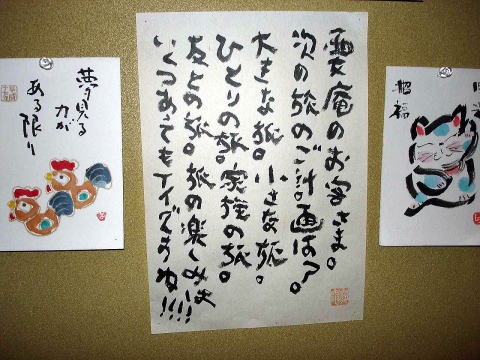 招福
庵のお客さま。
次の旅のご計画は?。
大きな旅。小さな旅。
ひとりの旅。家族の旅。
友との旅。旅の楽しみは
いくつあってもイイですね!!!!
夢見る
力が
ある限り